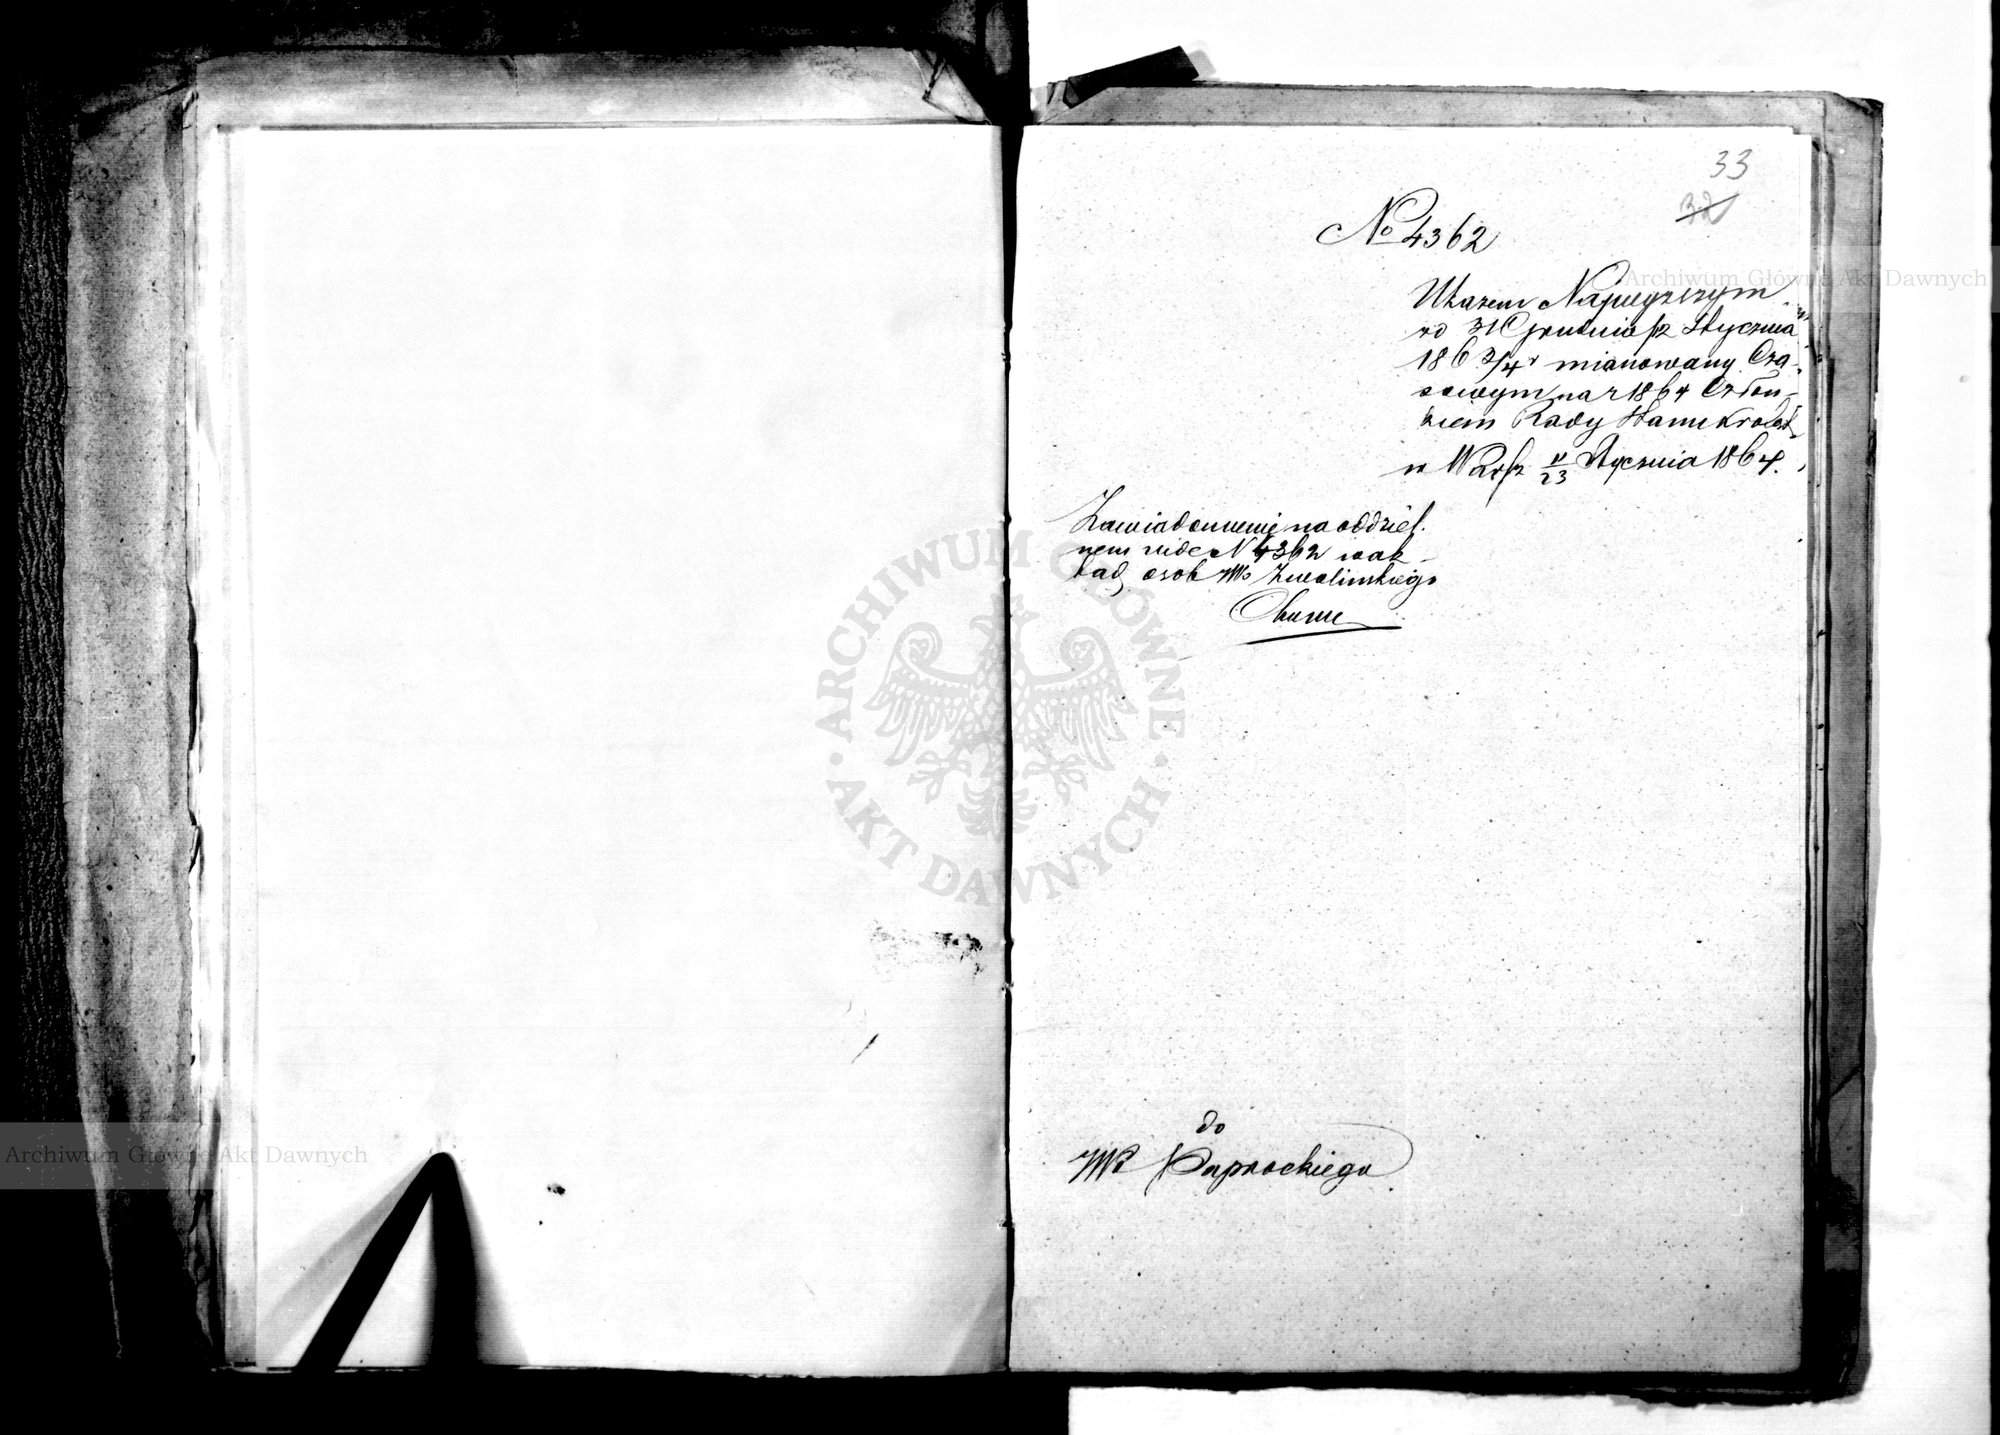 33
32
No 4362
Ukazem Najwyższym
od 31 Grudnia / 12 Stycznia
186 3/4 r mianowany Cza-
sowym na r 1864 Człon-
kiem Rady Stanu Królest
w Warsz 11/23 Stycznia 1864.
Zawiadomienie na oddziel.
nem vide N 4362 w ak-
tach osob Mo Zwolinskiego
do
Mo Paprockiego
Archiwum Główne Akt Dawnych
ARCHIWUM GŁÓWNE
AKT DAWNYCH
Archiwum Główne Akt Dawnych